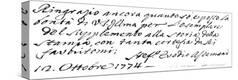 Ringrazio ancora quanto so e posso la
bontà di V. S. Illma per l'esemplare
Del Supplemento alla Storia della
Stampa, con tanta cortesia
fastidirmi.
Stef. Evodio Assemani
12. Ottobre 1774.